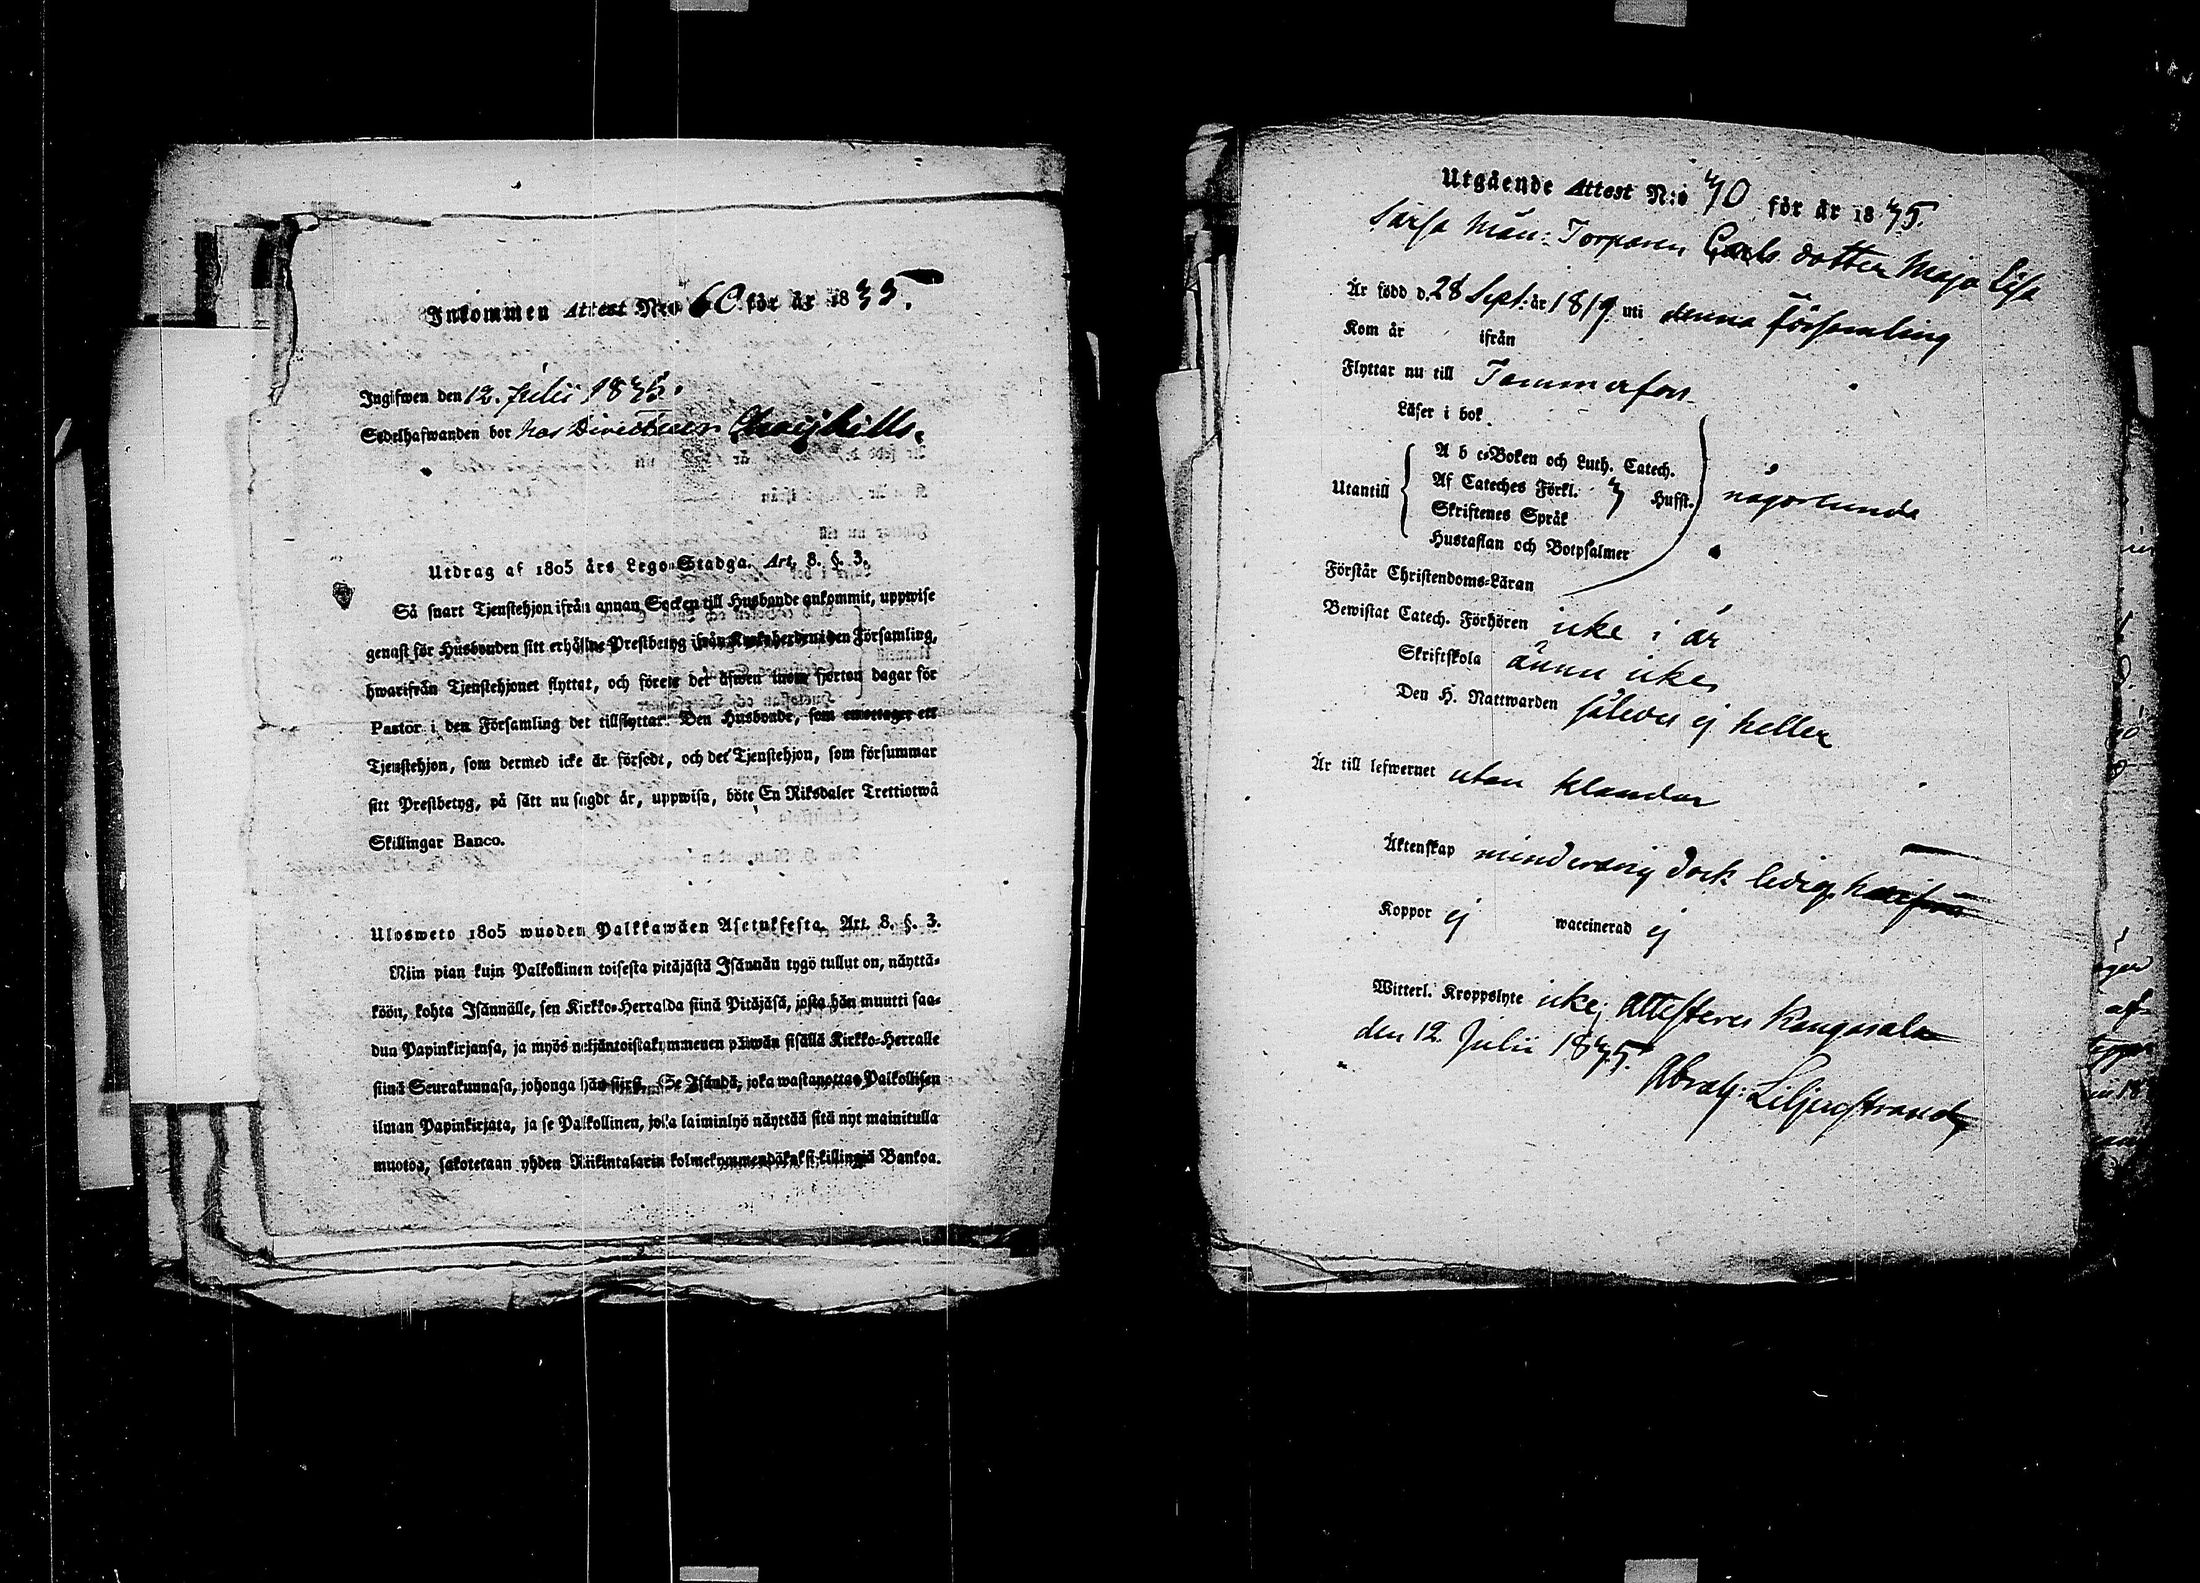 Inkommen Attest N:o 60 för år 1835.
Ingifwen den 12. Julii 1835.
Sedelhafwanden bor hos Directeur
Utdrag af 1805 års Lego-Stadga. Art. 8. §. 3.
Så snart Tjenstehjon ifrån annan Socken till Husbonde ankommit, uppwise
genast för Husbonden sitt erhållne Prestbetyg ifrån Kyrkoherden i den Församling,
hwarifrån Tjenstehjonet flyttat, och förete det äfwen inom fjorton dagar för
Pastor i den Församling det tillflyttar. Den Husbonde, som emottager ett
Tjenstehjon, som dermed icke är försedt, och det Tjenstehjon, som försummar
sitt Prestbetyg, på sätt nu sagdt är, uppwisa, böte En Riksdaler Trettiotwå
Skillingar Banco.
Ulosweto 1805 wuoden Palkkawäen Asetuksesta. Art. 8. §. 3.
Niin pian kuin Palkollinen toisesta pitäjästä Isännän tygö tullut on, näyttä-
köön, kohta Isännälle, sen Kirkko-Herralda siinä Pitäjäsä, josta hän muutti saa-
dun Papinkirjansa, ja myös neljäntoistakymmenen päiwän sisällä Kirkko-Herralle
siinä Seurakunnasa, johonga hän siirsi. Se Isändä, joka wastanottaa Palkollisen
ilman Papinkirjata, ja se Palkollinen, joka laiminlyö näyttää sitä nyt mainitulla
muotoa, sakotetaan yhden Riikintalarin kolmekymmendäkaksi killingiä Bankoa.
Utgående Attest N:o 70 för år 1835.
Sarsa Män: Torparen Carls dotter Maja Lisa
Är född d. 28 Sept. år 1819 uti denna Församling
Kom år ifrån
Flyttar nu till Tammerfors
Läser i bok
A b c-Boken och Luth. Catech.
Utantill Af Cateches Förkl. 7 Hufst. någorlunda
Skriftenes Språk
Hustaflan och Botpsalmer
Förstår Christendoms-Läran
Bewistat Catech. Förhören icke i år
Skriftskola ännu icke,
Den H. Nattwarden således ej heller
Är till lefwernet utan klander
Äktenskap minderårig dock ledig härifrån
Koppor ej waccinerad ej
Witterl. Kroppslyte icke; attesteres Kangasala
den 12. Julii 1835.
Abrah: Liljestrand